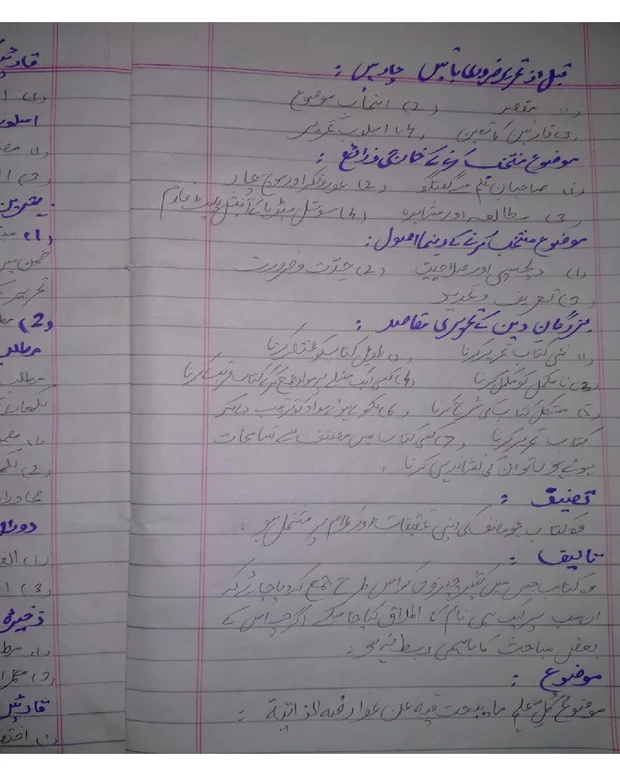 قبل از تحریر ضروری باتیں چار ہیں :
(1) مقصد (2) انتخاب موضوع
(3) قارئین کا تعین (4) اسلوب تحریر
موضوع منتخب کرنے کے خارجی ذرائع :
(1) صاحبان علم سے گفتگو (2) غور و فکر اور سوچ بچار
(3) مطالعہ اور مشاہدہ (4) سوشل میڈیا کے آفیشل پلیٹ فارم
موضوع منتخب کرنے کے رہنما اصول :
(1) دلچسپی اور صلاحیت (2) جدت و ضرورت
(3) تعریف و تحدید
بزرگان دین کے تحریری مقاصد :
(1) نئی کتاب تحریر کرنا (2) طویل کتاب کو مختصر کرنا
(3) نامکمل کو مکمل کرنا (4) کسی ایک مسئلے پر مواد جمع کر کے کتاب مرتب کرنا
(5) مشکل کتاب کی شرح کرنا (6) بکھرے ہوئے مواد کو ترتیب دے کر
کتاب تحریر کرنا (7) کسی کتاب میں مصنف سے تسامحات
ہوئے ہوں تو ان کی نشاندہی کرنا ۔
تصنیف :
وہ کتاب جو مصنف کی اپنی تحقیقات اور کلام پر مشتمل ہو ۔
تالیف :
وہ کتاب جس میں کثیر چیزوں کو اس طرح جمع کر دیا جائے کہ
ان سب پر ایک ہی نام کا اطلاق کیا جا سکے اگرچہ اس کے
بعض مباحث کا باہمی ربط نہ ہو ۔
موضوع :
موضوع کل علم ما یبحث فیه عن عوارضه الذاتیة :
(1)
(2)
مطالب
(1)
(2)
(1)
(3)
ذخیرہ
(1)
(2)
(1)